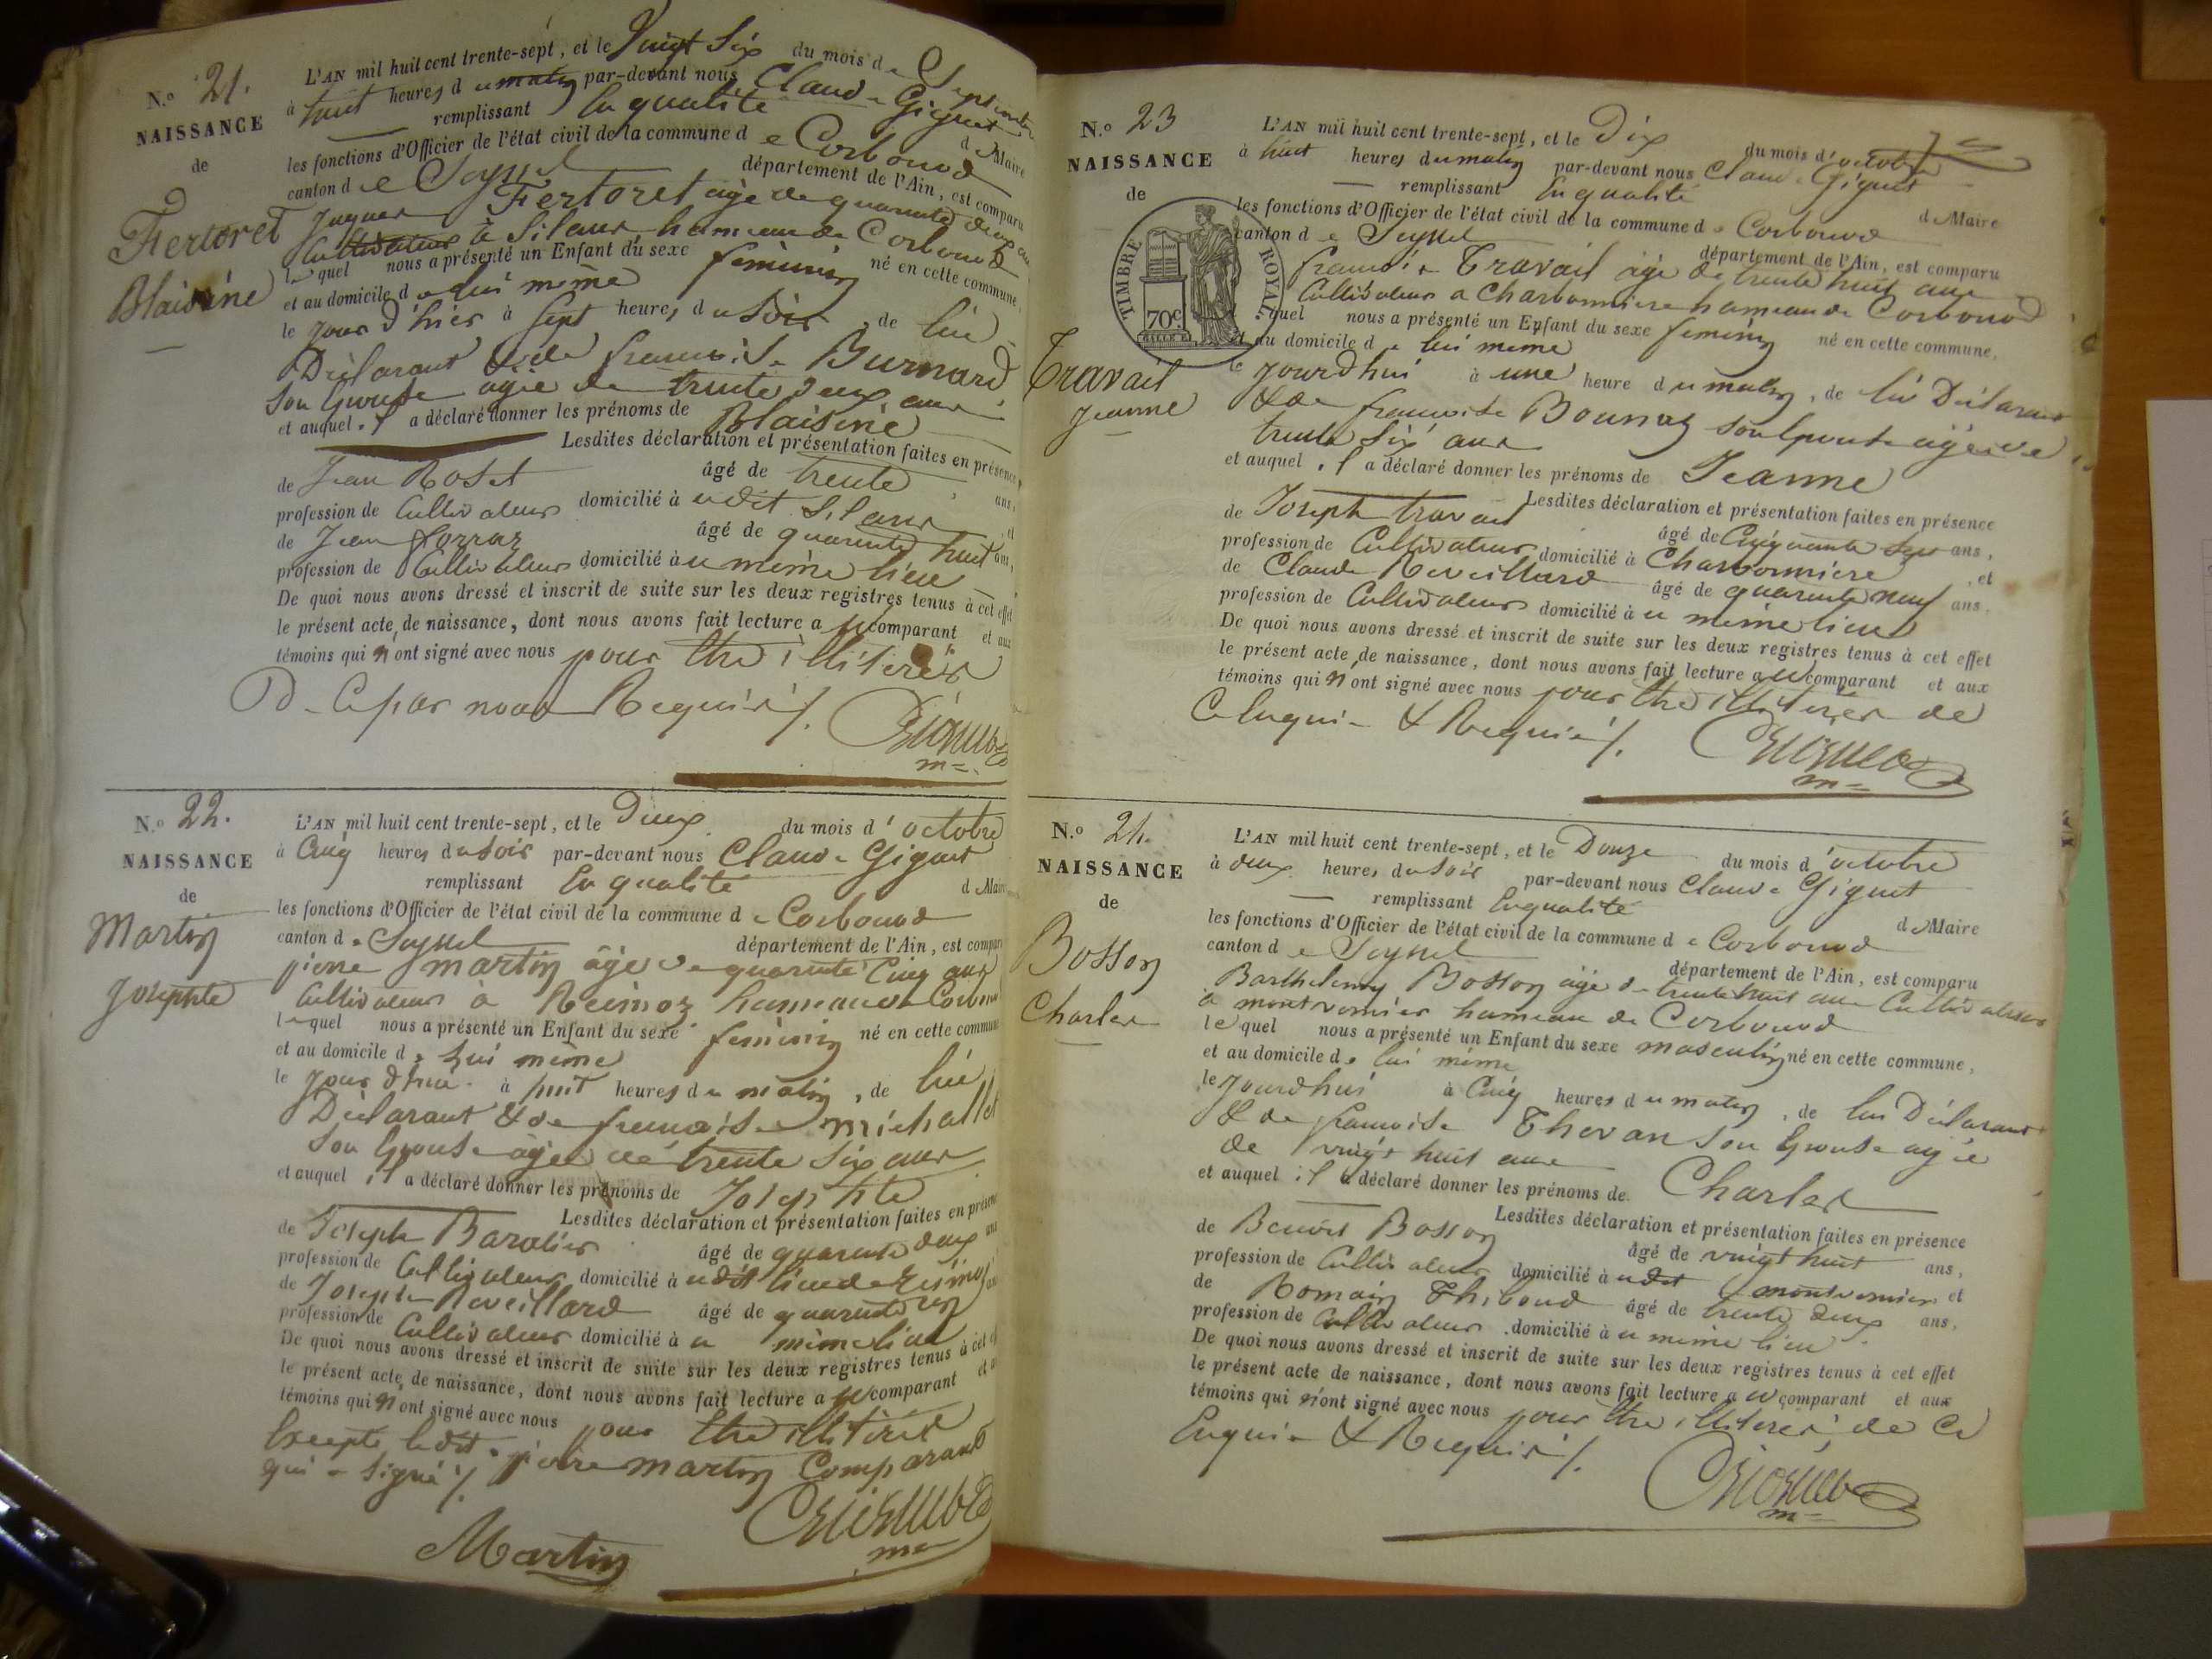 N.o 21.
NAISSANCE
de
Fertoret
Blaisine
L'AN mil huit cent trente-sept, et le Vingt Six du mois de Septembre
à huit heures du matin par-devant nous Claude Giguet
remplissant En qualité de Maire
les fonctions d'Officier de l'état civil de la commune de Corbonod
canton de Seyssel département de l'Ain, est comparu
Jaques Fertoret agé de quarante deux ans
Cultivateur à Silans hameau de Corbonod
lequel nous a présenté un Enfant du sexe féminin né en cette commune,
et au domicile de lui même
le jour d'hier à Sept heures du Soir, de lui
Déclarant & de françoise Burnard
Son Epouse agée de trente deux ans
et auquel il a déclaré donner les prénoms de Blaisine
Lesdites déclaration et présentation faites en présence
de Jean Roset âgé de trente ans,
profession de Cultivateur domicilié à udit Silans et
de Jean âgé de quarante huit ans,
profession de Cultivateur domicilié à u même lieu
De quoi nous avons dressé et inscrit de suite sur les deux registres tenus à cet effet
le présent acte de naissance, dont nous avons fait lecture au comparant et aux
témoins qui n'ont signé avec nous pour être illiterés
De Ce par nous Requis ./.
Giguet
m=
N.o 22.
NAISSANCE
de
Martin
Josephte
L'AN mil huit cent trente-sept, et le Deux du mois d'octobre
à Cinq heures du Soir par-devant nous Claude Giguet
remplissant En qualité de Maire
les fonctions d'Officier de l'état civil de la commune de Corbonod
canton de Seyssel département de l'Ain, est comparu
pierre Martin âgé de quarante Cinq ans
Cultivateur à Reimoz hameau de Corbonod
lequel nous a présenté un Enfant du sexe féminin né en cette commune
et au domicile de lui même
le jour d'hui à huit heures du matin, de lui
Déclarant & de françoise michallet
Son Epouse agée de trente Six ans
et auquel il a déclaré donner les prénoms de Josephte
Lesdites déclaration et présentation faites en présence
de Joseph Baratier âgé de quarante deux ans
profession de Cultivateur domicilié à udit lieu de Reimoz
de Joseph Reveillard âgé de quarante
profession de Cultivateur domicilié à u même lieu
De quoi nous avons dressé et inscrit de suite sur les deux registres tenus à cet
le présent acte de naissance, dont nous avons fait lecture au comparant et
témoins qui n'ont signé avec nous pour être illiterés
Excepté ledit pierre martin Comparant
qui a Signé ./.
Martin
Giguet
m=
N.o 23
NAISSANCE
de
TIMBRE ROYAL
70c
Travail
Jeanne
L'AN mil huit cent trente-sept, et le Dix du mois d'octobre
à huit heures du matin par-devant nous Claude Giguet
remplissant En qualité de Maire
les fonctions d'Officier de l'état civil de la commune de Corbonod
canton de Seyssel département de l'Ain, est comparu
françois Travail âgé de trente huit ans
Cultivateur a Charbonniere hameau de Corbonod
lequel nous a présenté un Enfant du sexe féminin né en cette commune,
et au domicile de lui même
le jourdhui à une heure du matin, de lui Déclarant
& de francoise Bounaz son Epouse agée de
trente Six ans
et auquel il a déclaré donner les prénoms de Jeanne
Lesdites déclaration et présentation faites en présence
de Joseph travail âgé de Cinquante ans,
profession de Cultivateur domicilié à Charbonniere et
de Claude Reveillard âgé de quarante neuf ans,
profession de Cultivateur domicilié à u même lieu
De quoi nous avons dressé et inscrit de suite sur les deux registres tenus à cet effet
le présent acte de naissance, dont nous avons fait lecture au comparant et aux
témoins qui n'ont signé avec nous pour être illiterés de
Ce Enquis & Requis ./.
Giguet
m=
N.o 24.
NAISSANCE
de
Bosson
Charles
L'AN mil huit cent trente-sept, et le Douze du mois d'octobre
à deux heures du Soir par-devant nous Claude Giguet
remplissant En qualité de Maire
les fonctions d'Officier de l'état civil de la commune de Corbonod
canton de Seyssel département de l'Ain, est comparu
Barthelemy Bosson âgé de trente huit ans Cultivateur
à montvernier hameau de Corbonod
lequel nous a présenté un Enfant du sexe masculin né en cette commune,
et au domicile de lui même
le jourdhui à Cinq heures du matin, de lui Déclarant
& de françoise Son Epouse agée
de vingt huit ans
et auquel il a déclaré donner les prénoms de Charles
Lesdites déclaration et présentation faites en présence
de Benoit Bosson âgé de vingt huit ans,
profession de Cultivateur domicilié à udit montvernier et
de Romain Thiboud âgé de trente deux ans,
profession de Cultivateur domicilié à u même lieu
De quoi nous avons dressé et inscrit de suite sur les deux registres tenus à cet effet
le présent acte de naissance, dont nous avons fait lecture au comparant et aux
témoins qui n'ont signé avec nous pour être illiterés de Ce
Enquis & Requis ./.
Giguet
m=